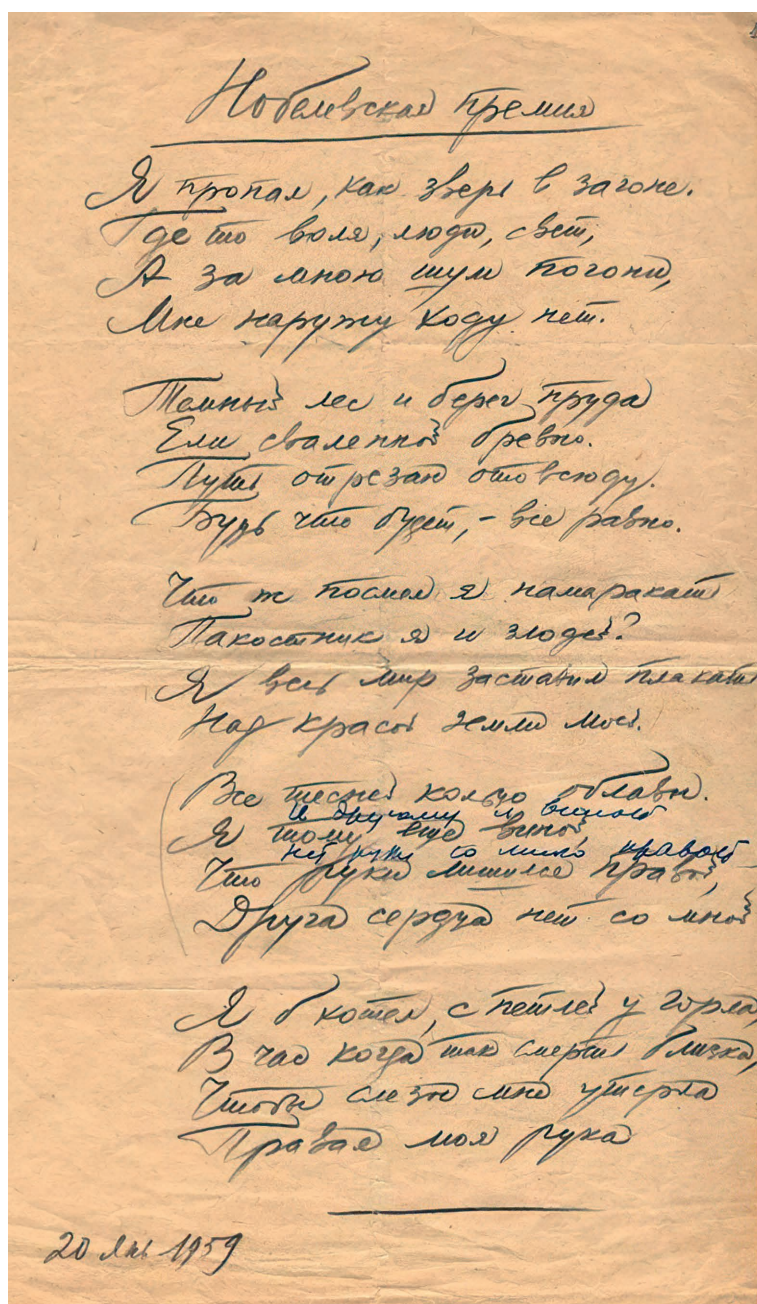 Нобелевская премия
Я пропал, как зверь в загоне.
Где то воля, люди, свет,
А за мною шум погони,
Мне наружу ходу нет.
Темный лес и берег пруда
Ели сваленной бревно.
Путь отрезан отовсюду.
Будь что будет, – все равно.
Что ж посмел я намаракать
Пакостник я и злодей?
Я весь мир заставил плакать
Над красой земли моей.
Все тесней кольцо облавы.
И другому я виной
Я тому еще виной,
Нет руки со мною правой
Что руки лишился правой,
Друга сердца нет со мной
Я б хотел, с петлей у горла,
В час когда так смерть близка,
Чтобы слезы мне утерла
Правая моя рука
20 Янв 1959